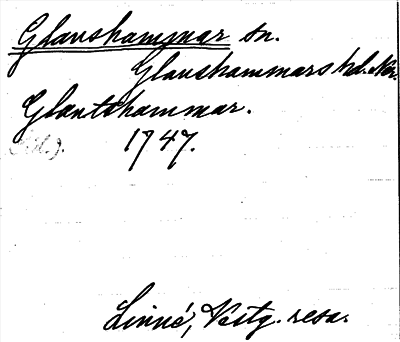 Glanshammar sn.
Glanshammars hd. När.
Glantshammar.
1747.
Linné, Västg. resa.